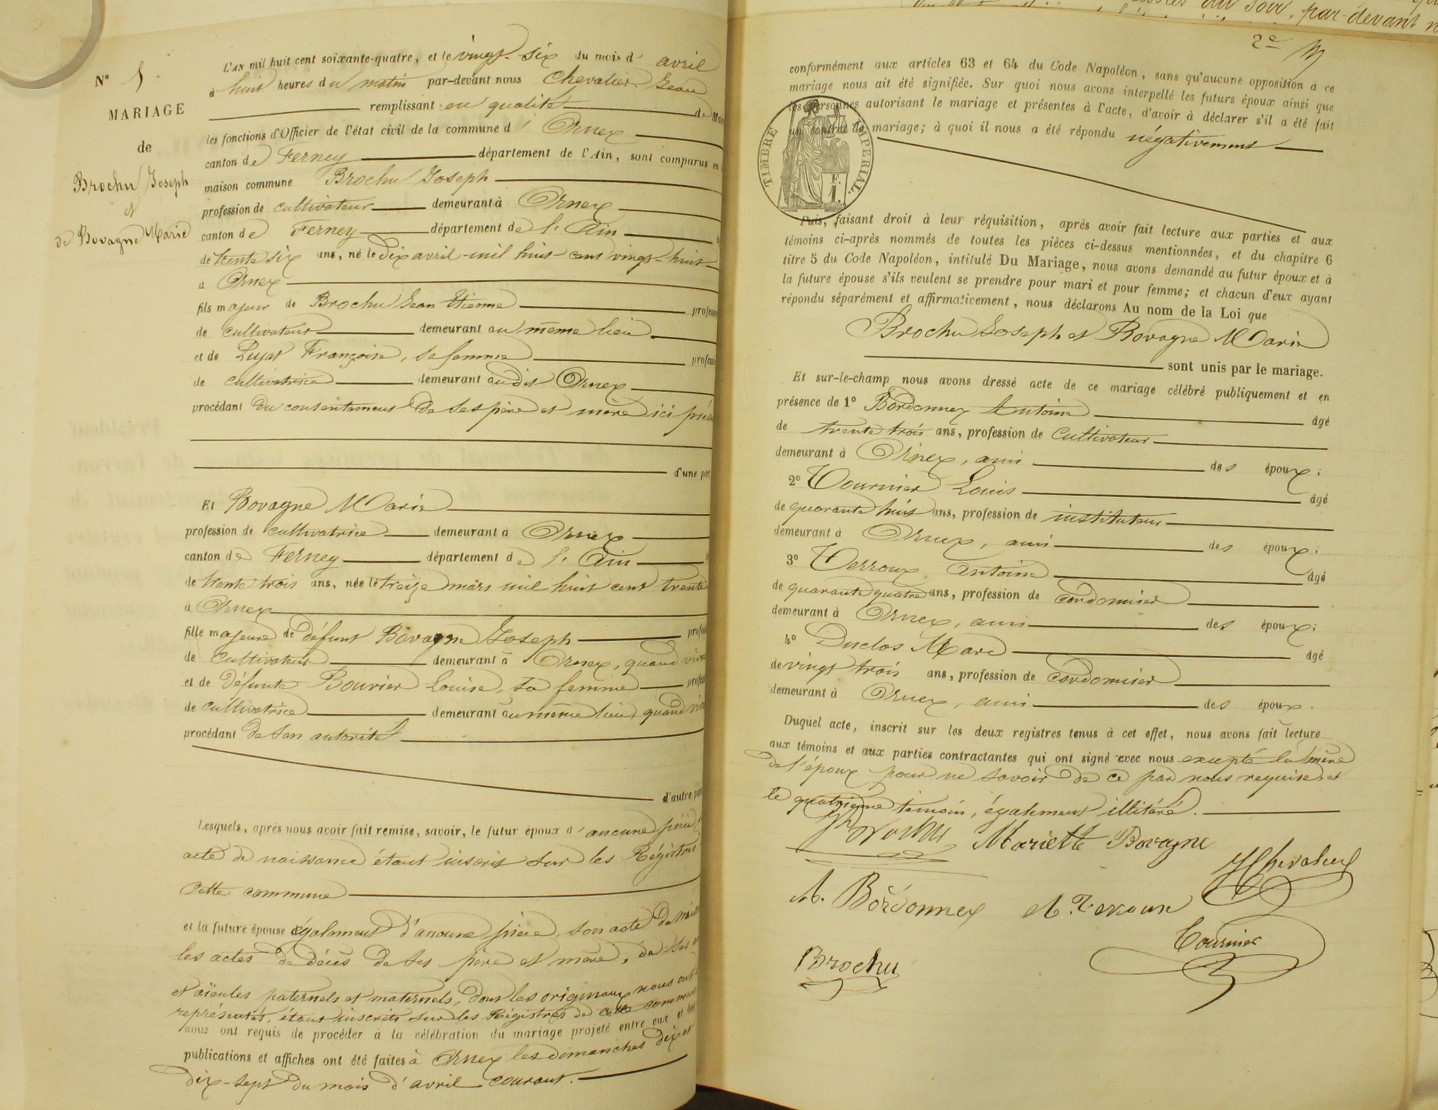 N° 5
MARIAGE
de
Brochu Joseph
et
de Bovagne Marie
L'AN mil huit cent soixante-quatre, et le vingt-six du mois d' avril
à huit heures du matin par-devant nous Chevalier Jean
remplissant en qualité de
les fonctions d'Officier de l'état civil de la commune d' Ornex
canton de Ferney département de l'Ain, sont comparus en
maison commune Brochu Joseph
profession de cultivateur demeurant à Ornex
canton de Ferney département de l' Ain
de trente six ans, né le dix avril mil huit cent vingt-huit
à Ornex
fils majeur de Brochu Jean Etienne
de cultivateur demeurant au même lieu
et de Françoise, sa femme
de cultivatrice demeurant audit Ornex
procédant du consentement de ses père et mère ici
d'une part
Et Bovagne Marie
profession de cultivatrice demeurant à Ornex
canton de Ferney département de l' Ain
de trente trois ans, née le treize mars mil huit cent trente
à Ornex
fille majeure de défunt Bovagne Joseph
de cultivateur demeurant à Ornex, quand
et de défunte Bouvier Louise, sa femme
de cultivatrice demeurant au même lieu, quand
procédant de son autorité
d'autre part
Lesquels, après nous avoir fait remise, savoir, le futur époux d' aucune pièce,
acte de naissance étant inscrit sur les Régistres
cette commune
et la future épouse également d'aucune pièce, son acte de
les actes de décès de ses père et mère, de ses
et aïeules paternels et maternels, dont les originaux nous ont
représentés, étant inscrits sur les Régistres de cette commune
nous ont requis de procéder à la célébration du mariage projeté entre eux et
publications et affiches ont été faites à Ornex les dimanches dix et
dix-sept du mois d'avril courant.
par-devant
2e
conformément aux articles 63 et 64 du Code Napoléon, sans qu'aucune opposition à ce
mariage nous ait été signifiée. Sur quoi nous avons interpellé les futurs époux ainsi que
les personnes autorisant le mariage et présentes à l'acte, d'avoir à déclarer s'il a été fait
un contrat de mariage; à quoi il nous a été répondu négativement
TIMBRE IMPÉRIAL
Puis, faisant droit à leur réquisition, après avoir fait lecture aux parties et aux
témoins ci-après nommés de toutes les pièces ci-dessus mentionnées, et du chapitre 6
titre 5 du Code Napoléon, intitulé Du Mariage, nous avons demandé au futur époux et à
la future épouse s'ils veulent se prendre pour mari et pour femme; et chacun d'eux ayant
répondu séparément et affirmativement, nous déclarons Au nom de la Loi que
Brochu Joseph et Bovagne Marie
sont unis par le mariage.
Et sur-le-champ nous avons dressé acte de ce mariage célébré publiquement et en
présence de 1° Bordonnex Antoine âgé
de trente trois ans, profession de cultivateur
demeurant à Ornex, ami des époux;
2° Tournier Louis âgé
de quarante huit ans, profession de instituteur
demeurant à Ornex, ami des époux;
3° Antoine âgé
de quarante quatre ans, profession de cordonnier
demeurant à Ornex, ami des époux;
4° Duclos Marc âgé
de vingt trois ans, profession de cordonnier
demeurant à Ornex, ami des époux.
Duquel acte, inscrit sur les deux registres tenus à cet effet, nous avons fait lecture
aux témoins et aux parties contractantes qui ont signé avec nous excepté la mère
de l'époux pour ne savoir de ce par nous requise et
le quatrième témoin, également illitéré.
Mariette Bovagne
J Chevalier
A. Bordonnex
Tournier
Brochu